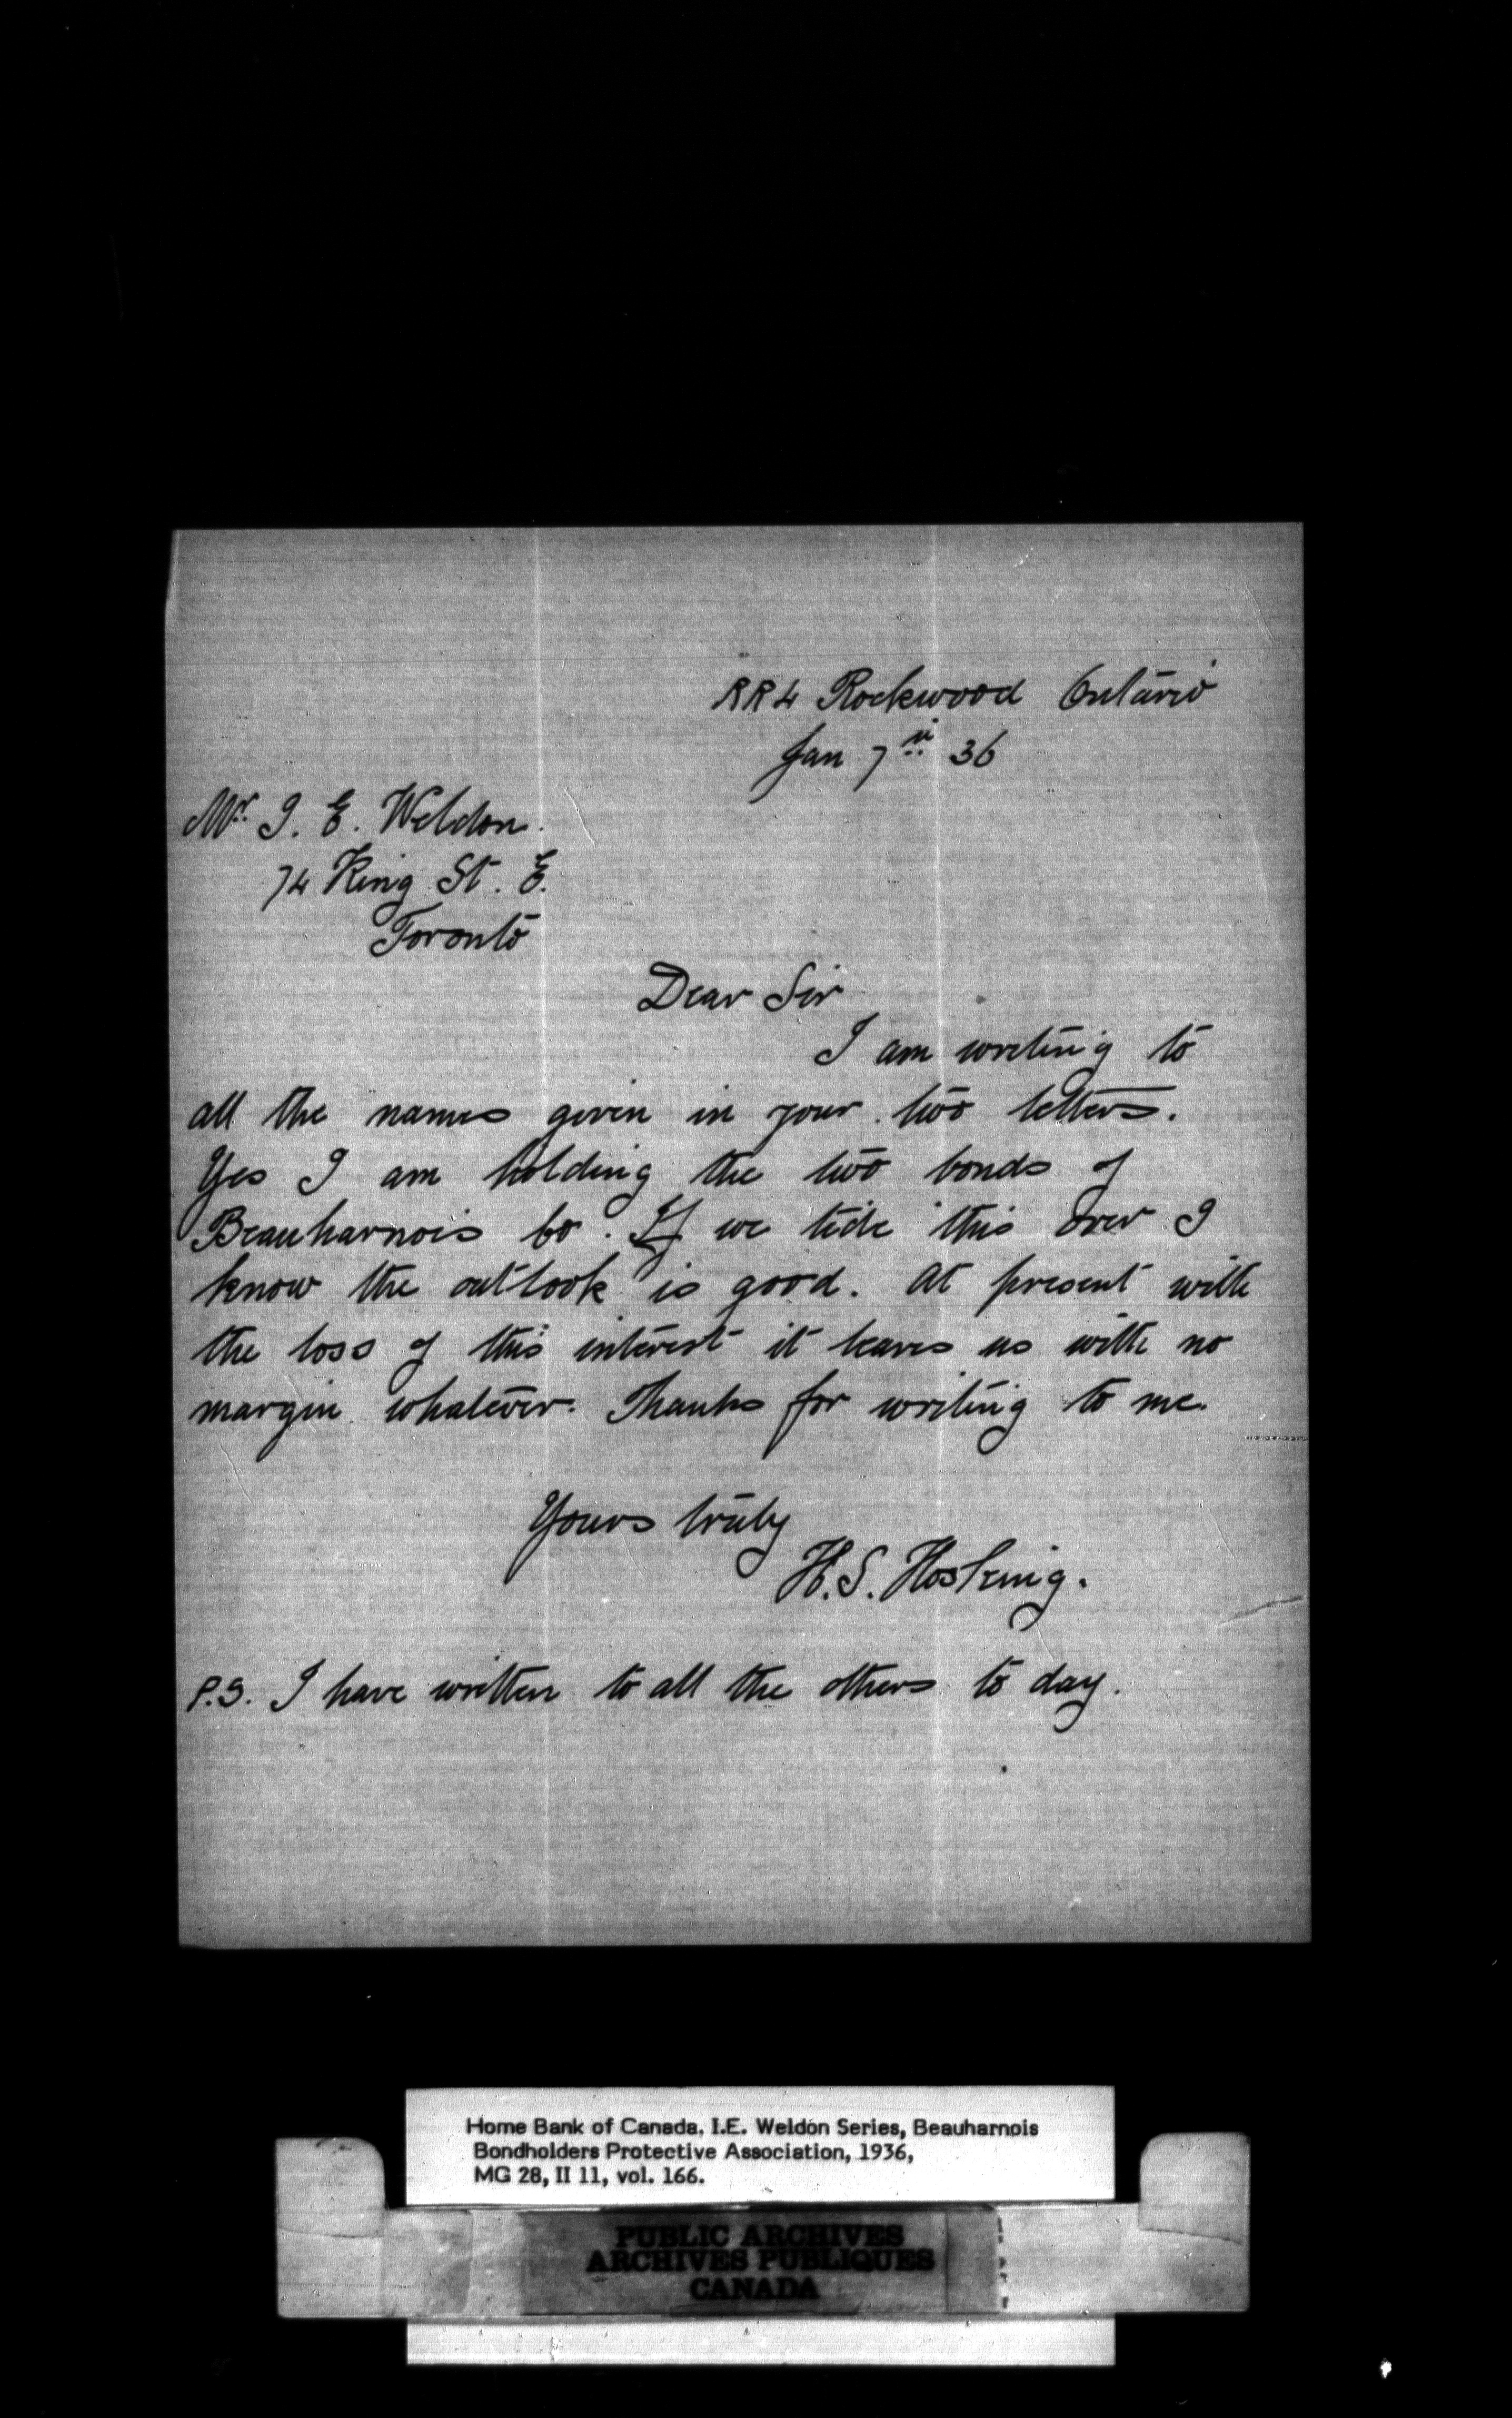 RR4 Rockwood Ontario
Jan 7th 36
Mr. I. E. Weldon.
74 King St. E.
Toronto
Dear Sir
I am writing to
all the names given in your two letters.
Yes I am holding the two bonds of
Beauharnois Co. If we tide this over I
know the outlook is good. At present with
the loss of this interest it leaves us with no
margin whatever. Thanks for writing to me.
Yours truly
H. S. Hosking.
P.S. I have written to all the others to day.
Home Bank of Canada, I.E. Weldon Series, Beauharnois
Bondholders Protective Association, 1936,
MG 28, II 11, vol. 166.
PUBLIC ARCHIVES
ARCHIVES PUBLIQUES
CANADA